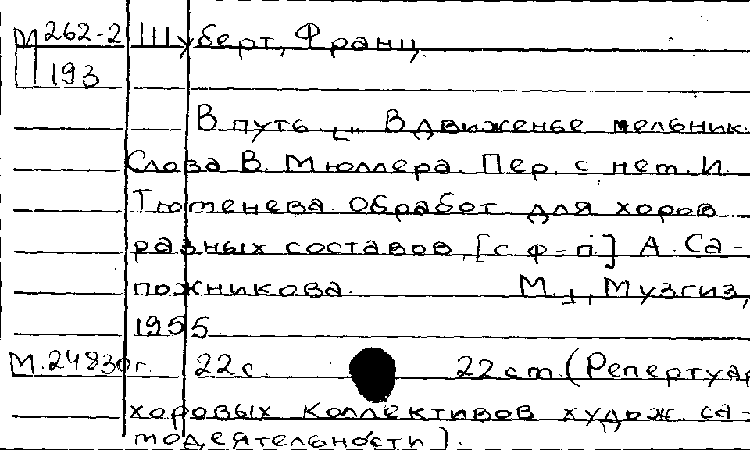 М 262-2 Шуберт, Франц
П 193
В путь „В движенье мельник.
Слова В. Мюллера. Пер. с нем. И.
Тюменева. Обработ. для хоров
разных составов, [с ф=п.] А. Са-
пожникова. М., Музгиз,
1955
М.24830г. 22 с. 22 cm. (Репертуар
хоровых коллективов худож са-
модеятельности).